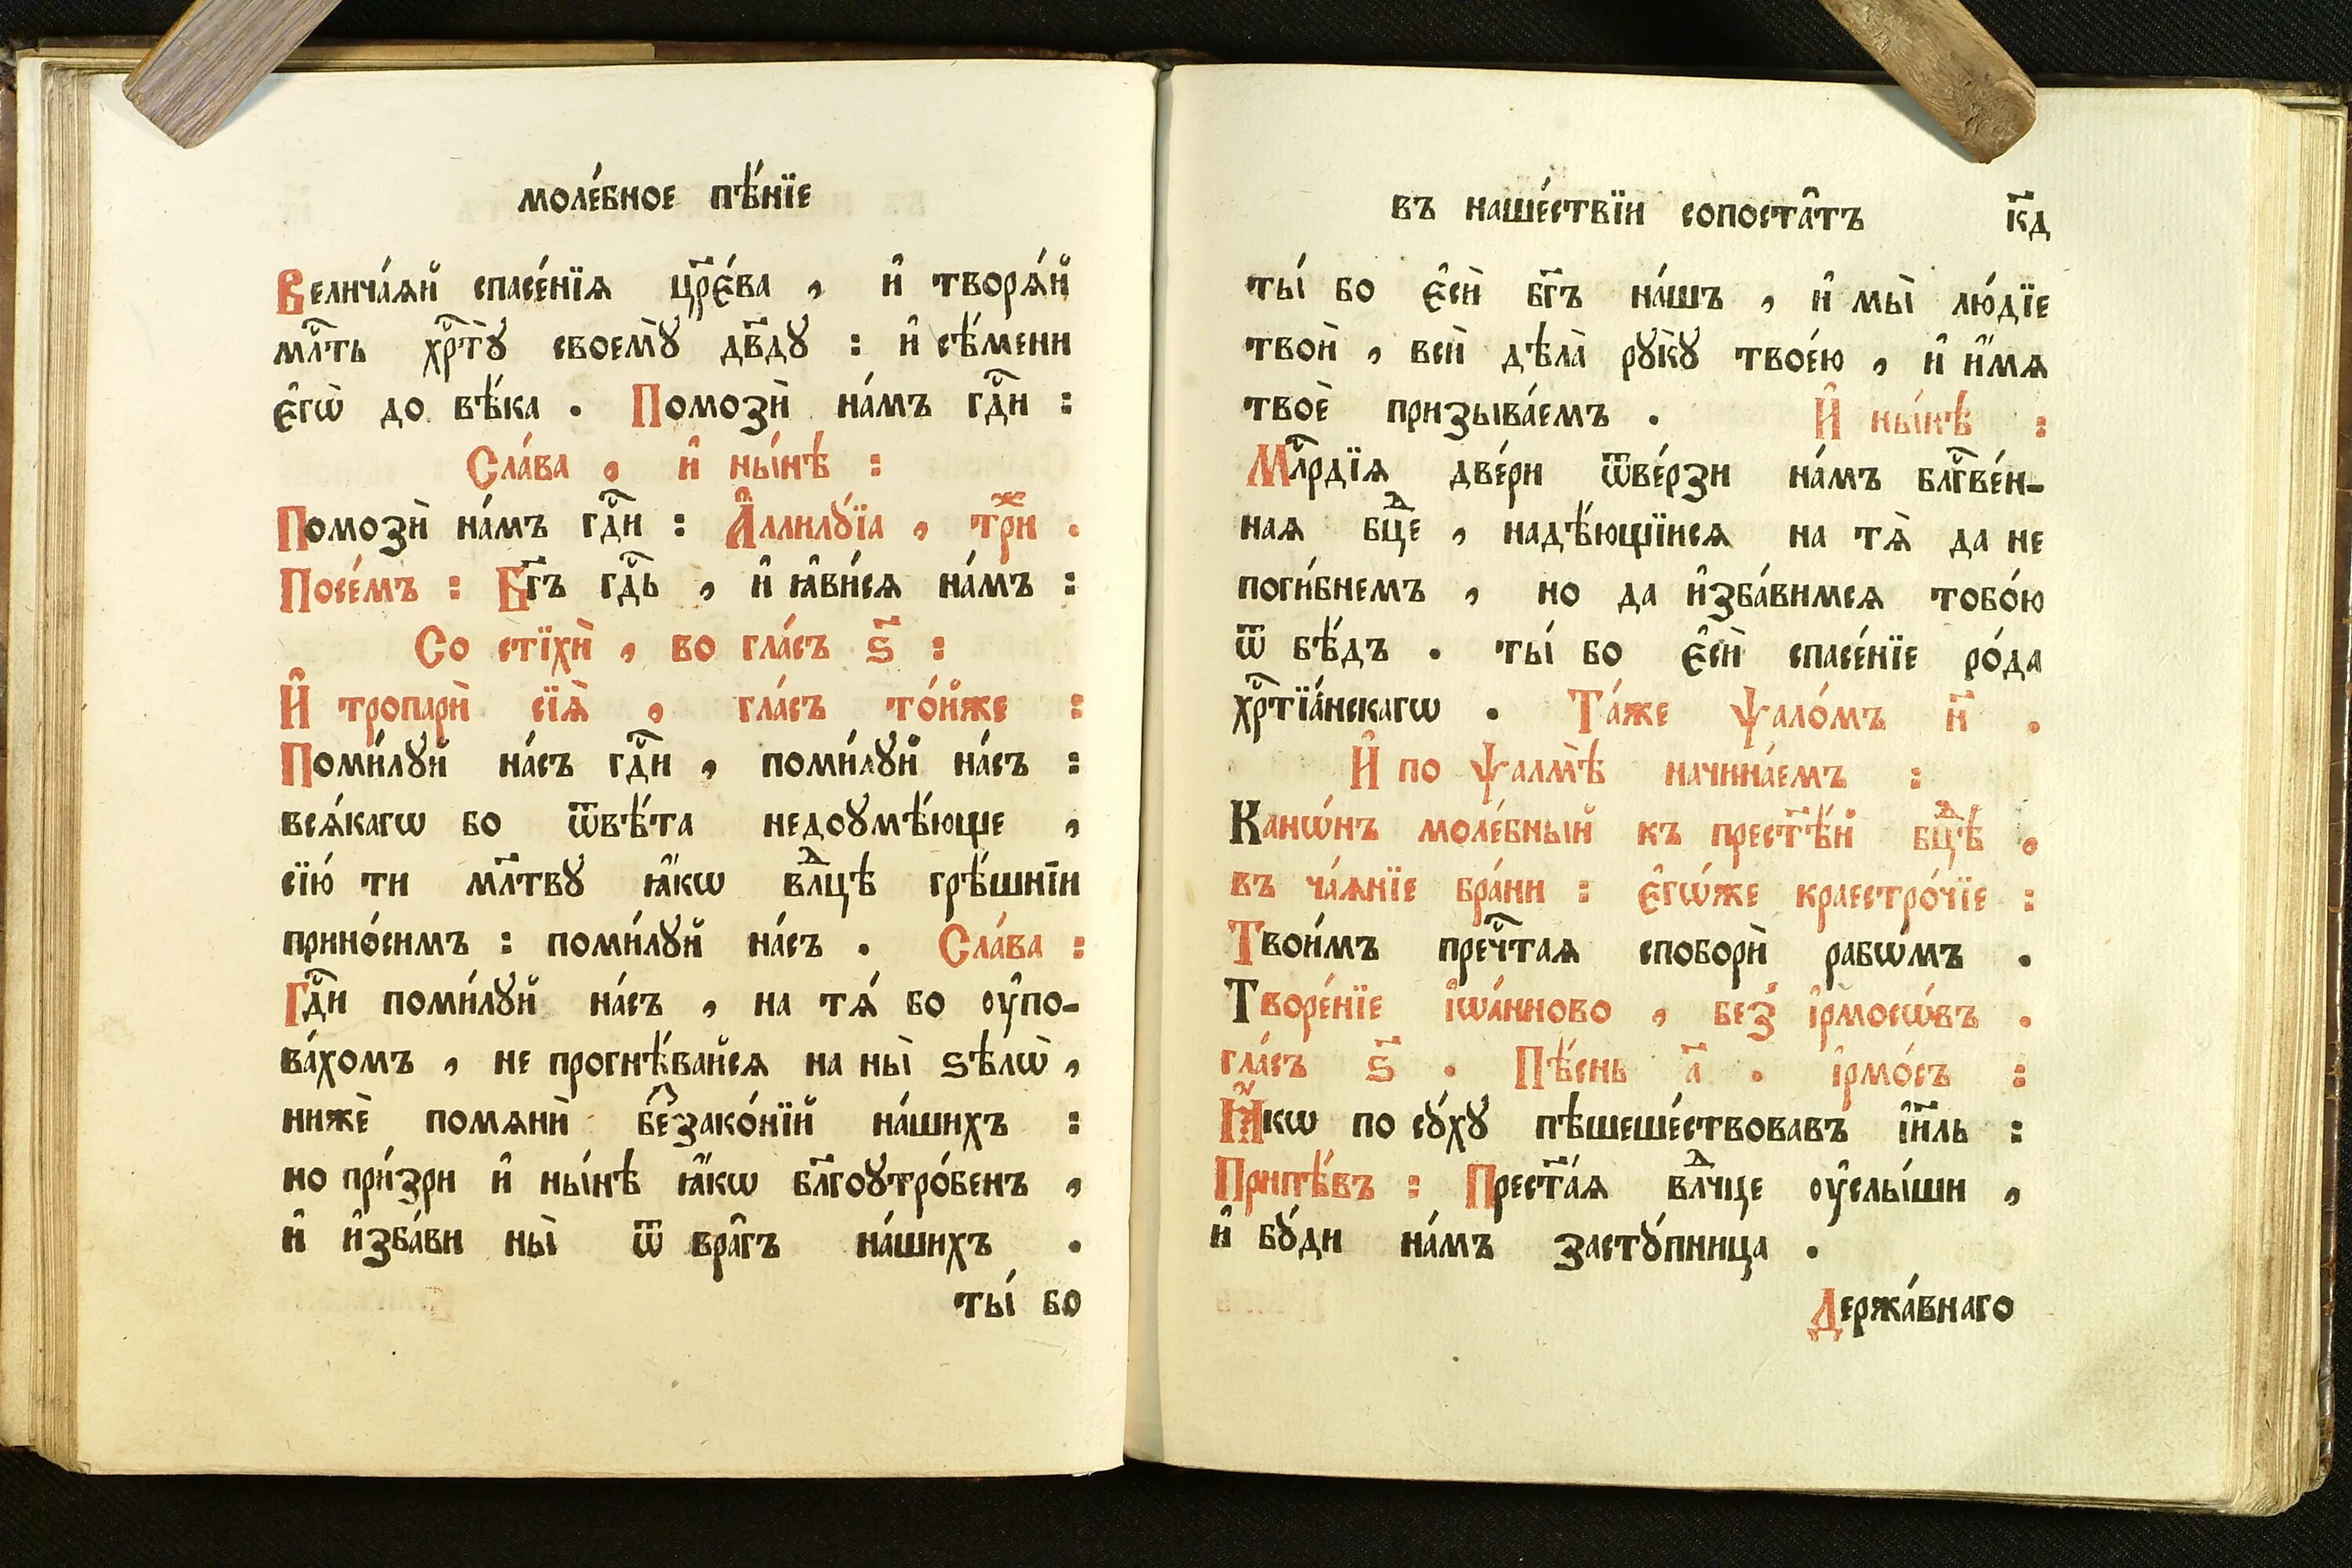 моле́бное пѣ́нїе
Велича́ѧй спасе́нїѧ цр҃є́ва , и҆ творѧ́й
млⷭ҇ть хрⷭ҇тꙋ̀ своемꙋ̀ дв҃дꙋ : и҆ сѣ́мени
є҆гѡ̀ до вѣ́ка . Помозѝ на́мъ гдⷭ҇и :
Сла́ва , и҆ ны́нѣ :
Помозѝ на́мъ гдⷭ҇и : А҆ллилꙋ́їа , трⷤи .
Посе́мъ : Бг҃ъ гдⷭ҇ь , и҆ ꙗ҆ви́сѧ на́мъ :
Со стїхѝ , во гла́съ ѕ҃ :
И҆ тропарѝ сїѧ̀ , гла́съ то́йже :
Поми́лꙋй на́съ гдⷭ҇и , поми́лꙋй на́съ :
всѧ́кагѡ бо ѿвѣ́та недоꙋмѣ́юще ,
сїю́ ти мл҃твꙋ ꙗ҆́кѡ влⷣцѣ грѣ́шнїи
прино́симъ : поми́лꙋй на́съ . Сла́ва :
Гдⷭ҇и поми́лꙋй на́съ , на тѧ́ бо оу҆по-
ва́хомъ , не прогнѣ́вайсѧ на ны̀ ѕѣлѡ̀ ,
нижѐ помѧнѝ бе҆зако́нїй на́шихъ :
но при́зри и҆ ны́нѣ ꙗ҆́кѡ бл҃гоꙋтро́бенъ ,
и҆ и҆зба́ви ны̀ ѿ вра̑гъ на́шихъ .
ты́ бо
въ наше́ствїи сопоста̑тъ к҃д
ты́ бо є҆сѝ бг҃ъ на́шъ , и҆ мы̀ лю́дїе
твоѝ , всѝ дѣла̀ рꙋ́кꙋ твоє́ю , и҆ и҆́мѧ
твоѐ призыва́емъ . И҆ ны́нѣ :
Млⷭ҇рдїѧ две́ри ѿве́рзи на́мъ блгⷭ҇ве́н-
наѧ бцⷣе , надѣ́ющїисѧ на тѧ̀ да не
поги́бнемъ , но да и҆зба́вимсѧ тобо́ю
ѿ бѣ́дъ . ты́ бо є҆сѝ спасе́нїе ро́да
хрⷭ҇тїа́нскагѡ . Та́же ѱало́мъ и҃ .
И҆ по ѱалмѣ̀ начина́емъ :
Канѡ́нъ моле́бный къ прест҃ѣ́й бцⷣѣ ,
въ ча́ѧнїе бра́ни : є҆гѡ́же краестро́чїе :
Твои́мъ пречⷭ҇таѧ споборѝ рабѡ́мъ .
Творе́нїе і҆ѡа́нново , без̾ і҆рмосѡ́въ .
гла́съ ѕ҃ . Пѣ́снь а҃ . і҆рмо́съ :
Ꙗ҆́кѡ по сꙋ́хꙋ пѣшеше́ствовавъ і҆и҃ль :
Припѣ́въ : Прест҃а́ѧ влⷣчце оу҆слы́ши ,
и҆ бꙋ́ди на́мъ застꙋ́пница .
Держа́внаго